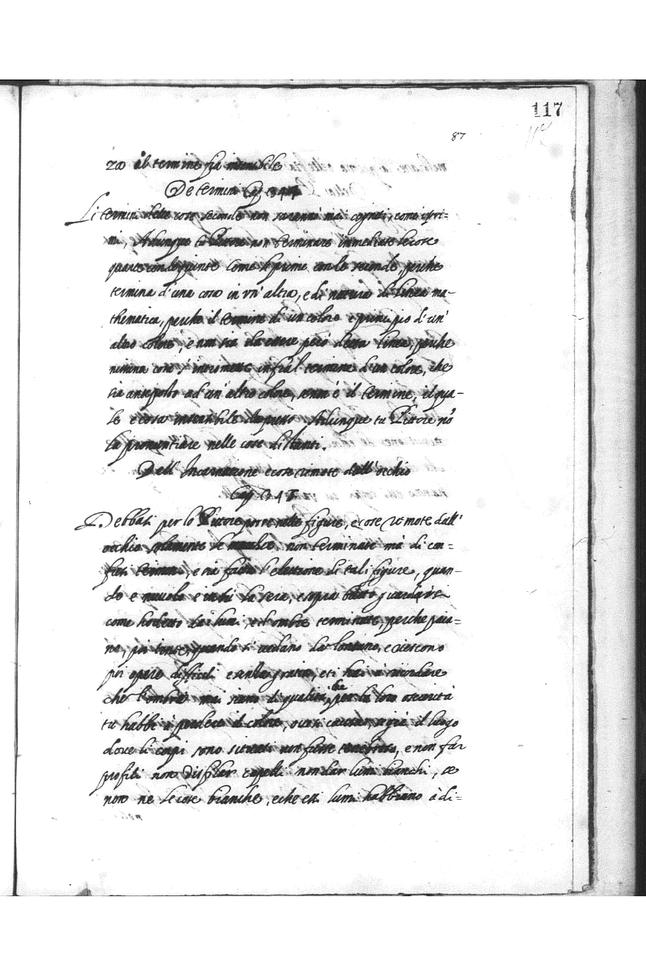 117
87
zo il termine sia mutabile
De termini Cap. 344
Li termini delle cose seconde non saranno mai cogniti, come i pri=
mi, Adunque tu Pittore non terminare immediate le cose
quarte con le quinte come le prime con le seconde, perche
termina d'una cosa in un' altra, e di natura di linea ma=
thematica, perche il termine di un colore e principio d'un'
altro colore, e non ha da essere però detta linea, perche
nissuna cosa s' intramette infra il termine d'un colore, che
sia antiposto ad un' altro colore, se non è il termine, il qua=
le e cosa insensibile d'appresso Adunque tu Pittore nō
la pronuntiare nelle cose distanti.
Dell' Incarnatione e cose remote dall' occhio
Cap. 345
Debbasi per lo Pittore porre nelle figure, e cose remote dall'
occhio solamente le macchie, non terminate mà di con=
fusi termini, e ne facci l'elettione di tali figure, quan=
do e nuvolo e in su la sera, e sopra tutto guardisi
come ho detto da i lumi, et ombre terminate, perche paio=
no, poi tente, quando si vedano da lontano, e riescono
poi opere difficili e senza gratia, et ti hai à ricordare
che l'ombre mai siano di qualità, che per la loro oscurità
tu habbi à perdere il colore, ove si causan, se gia il luogo
dove li corpi sono situati non fusse tenebroso, e non far
profili non disfilar capelli non dar lumi bianchi, se
non ne le cose bianche, e che essi lumi habbiano à di=